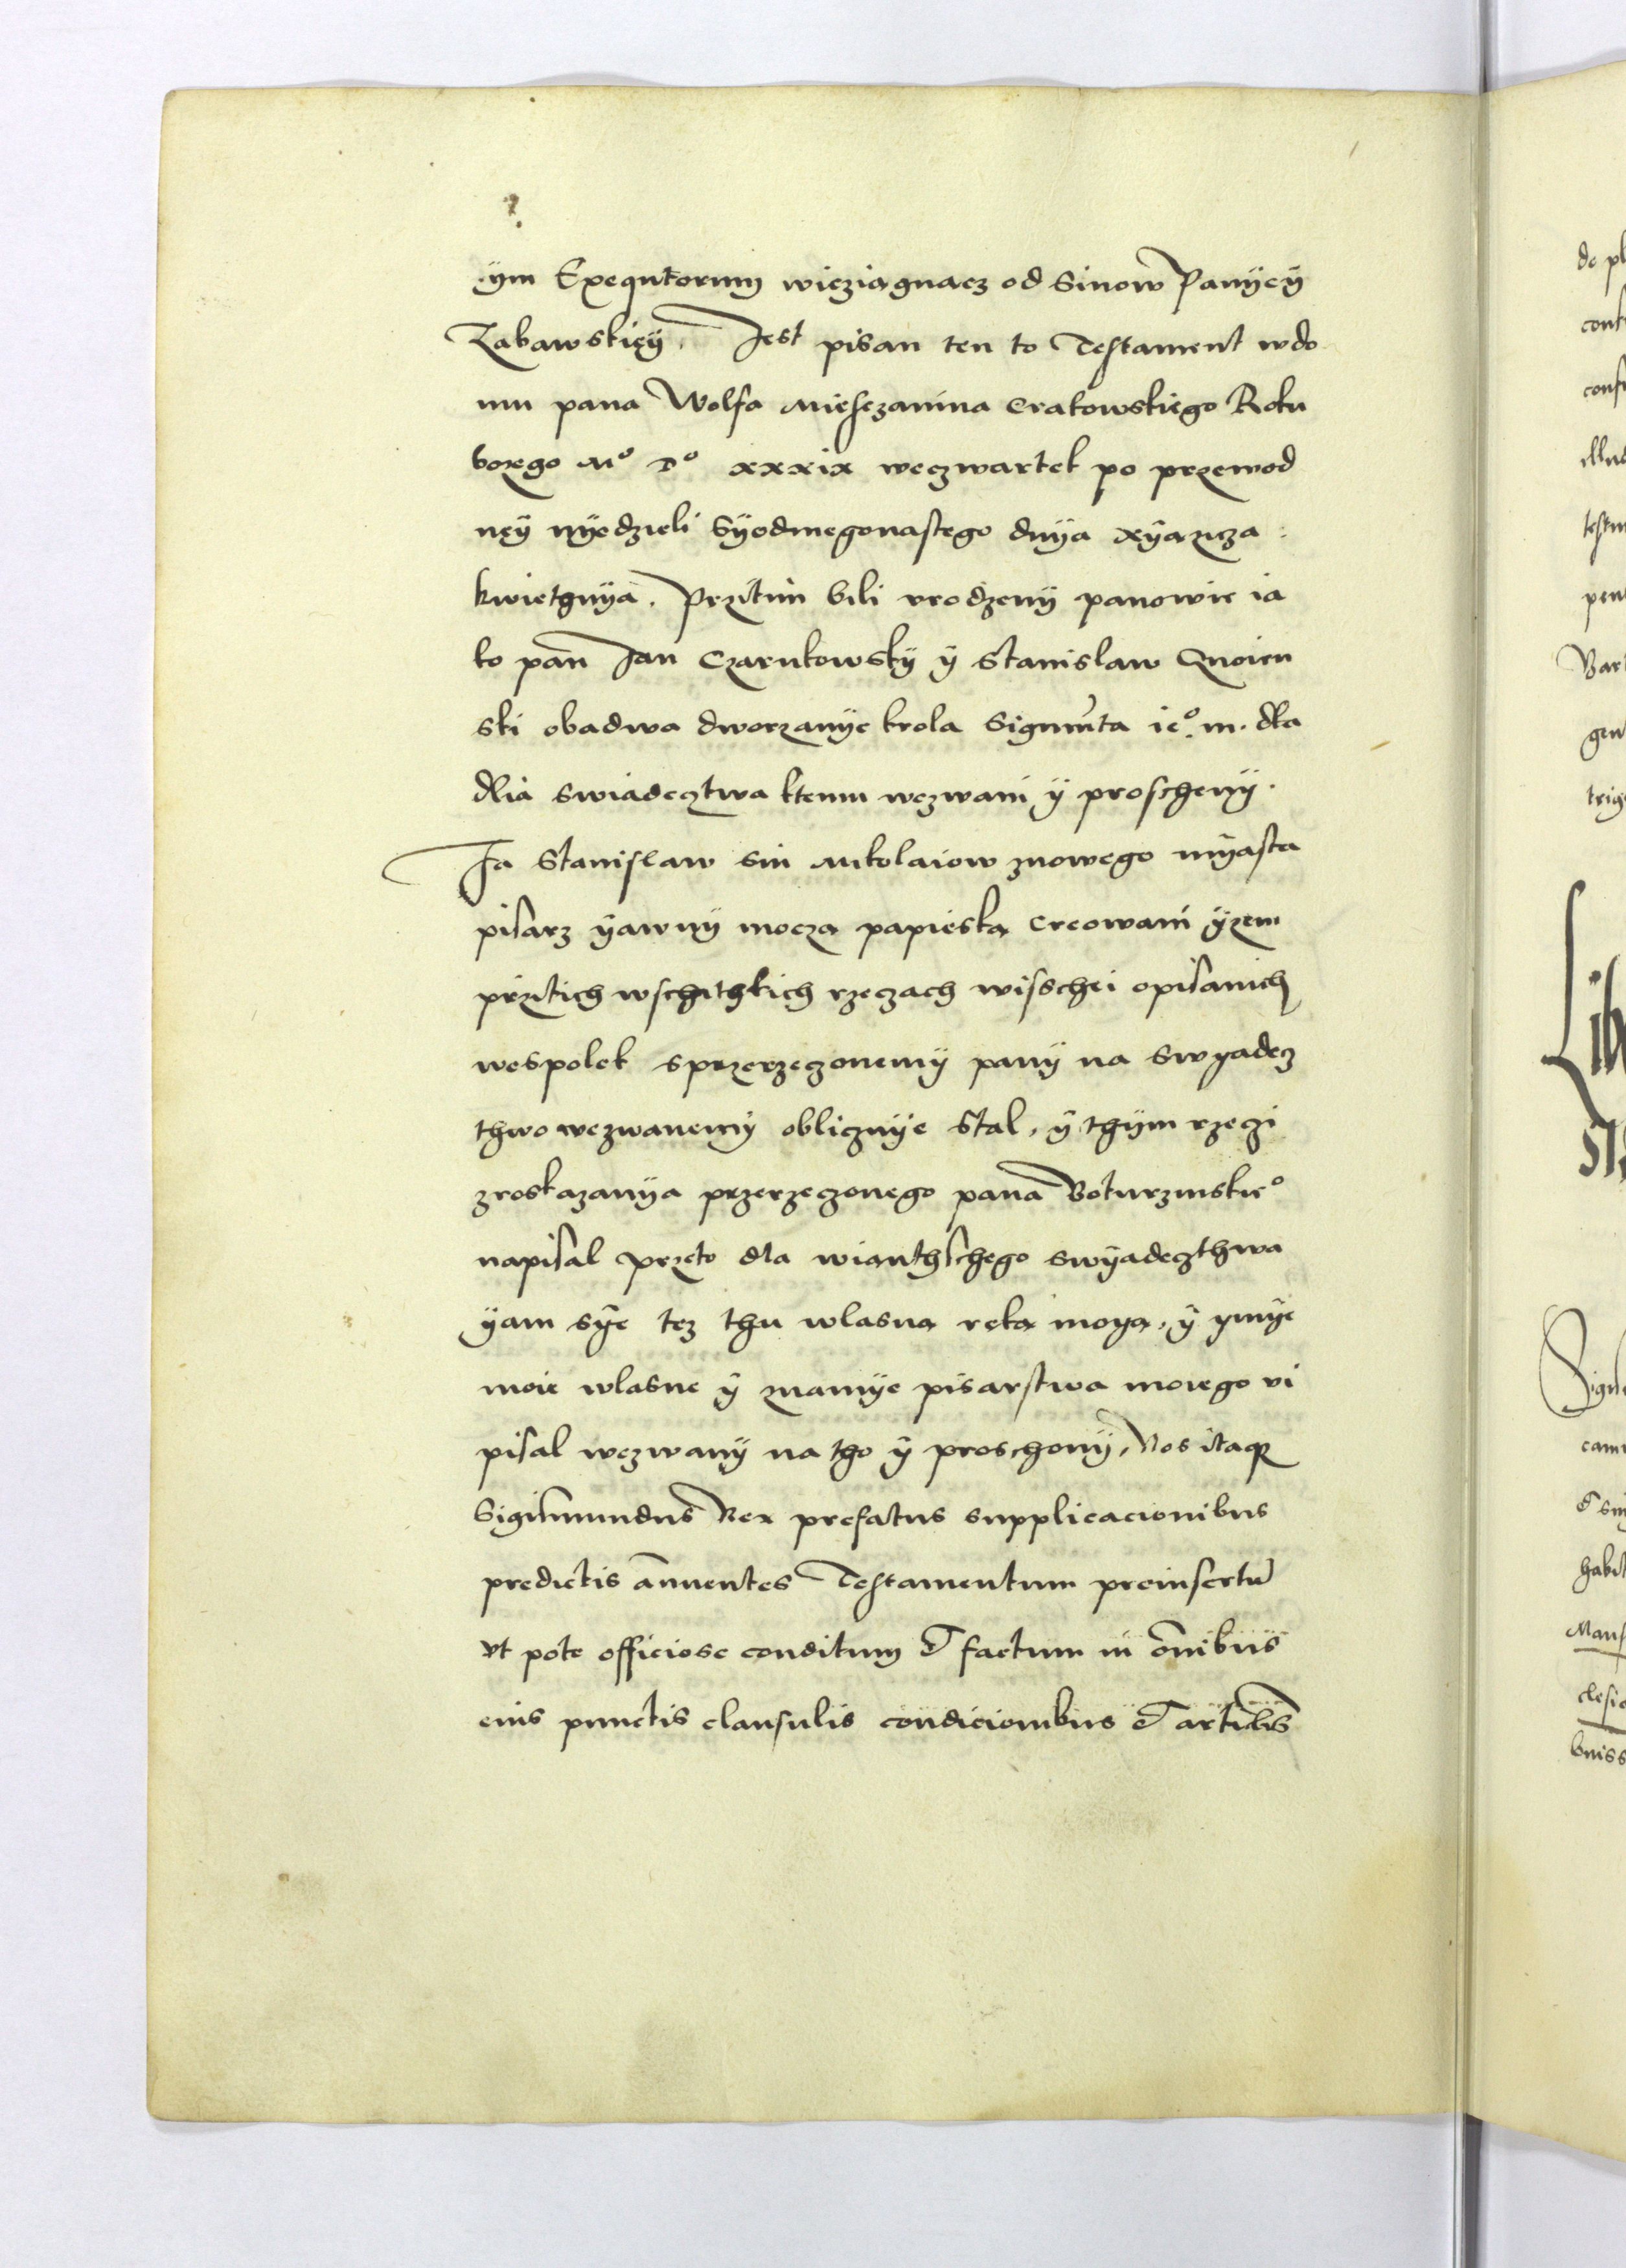 ÿm Exequtorum wieziągnącz od Sinow Panÿeÿ
Zabawskieÿ. Jest pisan ten to Testament wdo
mu pana Wolfa Miesczanina Crakowskiego Roku
bozego Mº Dº xxxix weczwartek po przewod
neÿ nÿedzieli Sÿodmegonastego dnÿa xÿązicza
kwietgnÿa. Przitim bili vrodzenÿ panowie ia
ko pan Jan Czarnkowskÿ ÿ Stanislaw Gnoien
ski obadwa dworzanÿe krola Sigmūta ieº. m. dla
dlia swiadecztwa ktemu wezwani ÿ proschenÿ.
Ja Stanislaw sin Mikolaiow znowego mÿasta
pisarz ÿawnÿ moczą papieską Creowani ÿzem
przitich wschithkich rzeczach wisschei opisanich
wespolek sprzerzeczonemÿ panÿ na swyadecz
thwo wezwanemÿ obliczniÿe stal, ÿ thÿm rzeczi
zroskazanÿa przerzeczonego pana Koturzinskieº
napisal przeto dla wiąnthschego swÿadeczthwa
ÿam sÿe tez thu wlasną ręką moyą, ÿ ymÿe
moie wlasne ÿ znamÿe pisarstwa moiego vi
pisal wezwanÿ na tho ÿ proschonÿ, Nos itaqꝫ
Sigismundus Rex prefatus supplicacionibus
predictis annuentes Testamentum preinsertū
vt pote officiose conditum & factum in omnibus
eius punctis clausulis condicionibus & articulis
de pl
conf
illud
Bar
gen
Lib
Sigis
habit
Mans
clesia
buiss